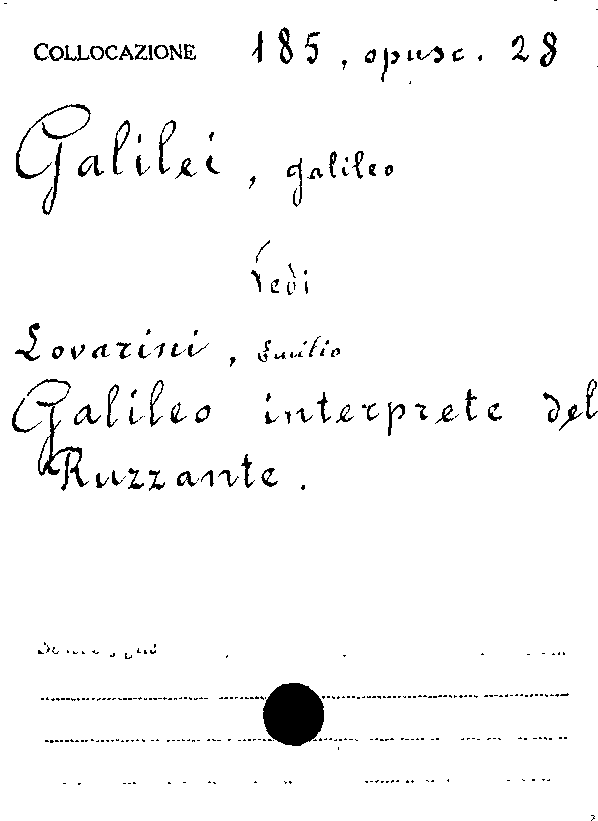 COLLOCAZIONE 185, opusc. 28
Galilei, Galileo
Vedi
Lovarini, Emilio
Galileo interprete del
Ruzzante.